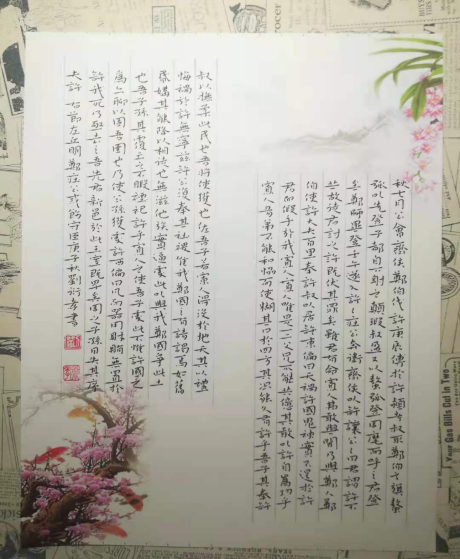 秋七月公會齊侯鄭伯伐许庚辰傅於許颖考叔取鄭伯之旗蝥
弧以先登子都自下射之顛瑕叔盈又以蝥弧登周麾而呼曰君登
矣鄭師畢登壬午遂入許許莊公奔衛齊侯以許讓公公曰君謂許不
共故從君討之許既伏其罪矣雖君有命寡人弗敢與聞乃與鄭人鄭
伯使許大夫百里奉許叔以居許東偏曰天禍許國鬼神實不逞於許
君而假手於我寡人寡人唯是一二父兄不能共億其敢以許自為功乎
寡人有弟不能和協而使糊其口于四方其况能久有許乎吾子其奉許
叔以撫柔此民也吾將使獲也佐吾子若寡人得沒於地天其以禮
悔禍於許無寧兹許公復奉其社稷唯我鄭國之有請謁焉如舊
昏媾其能降以相從也無滋他族實逼處此以與我鄭國爭此土
也吾子孫其覆亡之不暇而況能禋祀許乎寡人之使吾子處此不惟許國之
為亦聊以固吾圉也乃使公孫獲處許西偏曰凡而器用財賄無置於
許我死乃亟去之吾先君新邑於此王室而既卑矣周之子孫日失其序
夫許 右節左丘明鄭莊公戒飭守臣庚子秋劉衍孝書
Your Gas Bills Cut in Two